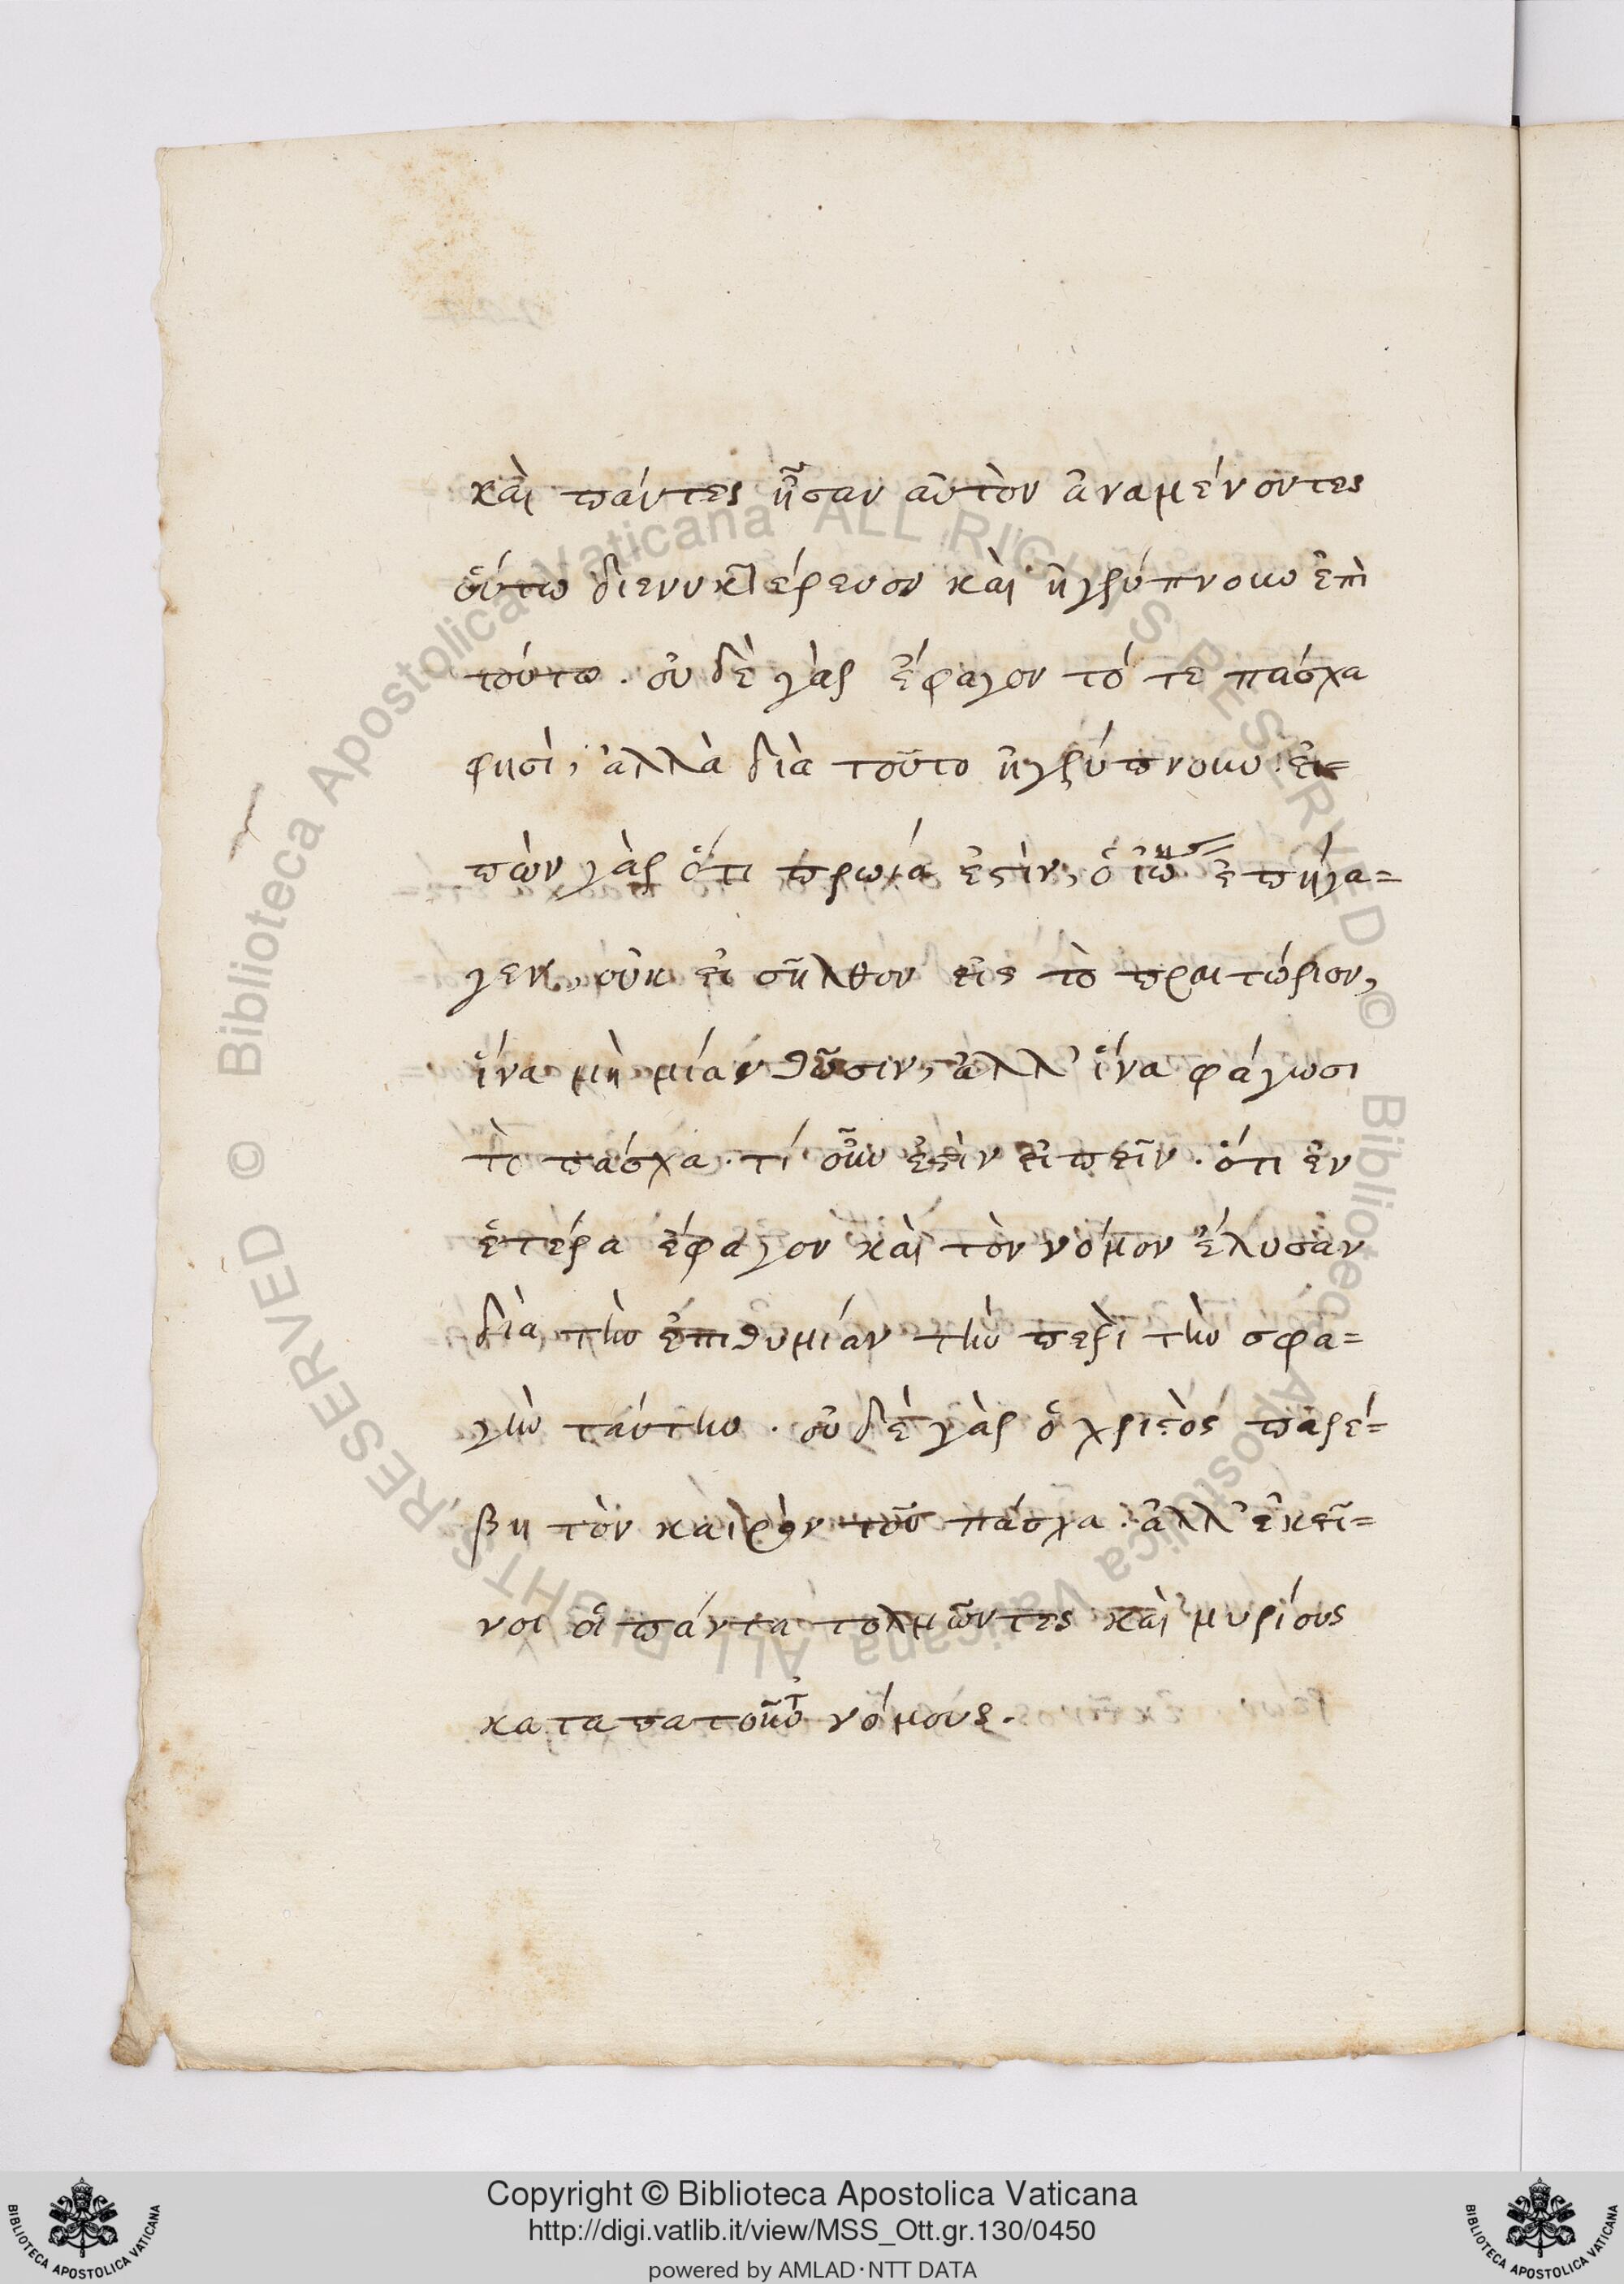 καὶ πάντες ἦσαν αὐτὸν ἀναμένοντες
οὕτω διενυκτέρευον καὶ ἠγρύπνουν ἐπὶ
τούτω. οὐδὲ γὰρ ἔφαγον τό τε πάσχα
φησὶ, ἀλλὰ διὰ τοῦτο ἠγρύπνουν. εἰ=
πὼν γὰρ ὅτι πρωία ἐστὶν, ὁ ἰωης ἐπήγα=
γεν, οὐκ εἰσῆλθον εἰς τὸ πραιτώριον,
ἵνα μὴ μιάνθῶσιν, ἀλλ' ἵνα φάγωσι
τὸ πάσχα. τί οὖν ἐστὶν εἰπεῖν. ὅτι ἐν
ἑτέρα ἔφαγον καὶ τὸν νόμον ἔλυσαν
διὰ τὴν ἐπιθυμίαν τὴν περὶ τὴν σφα=
γὴν ταύτην. οὐδὲ γὰρ ὁ χριστὸς παρέ=
βη τὸν καιρὸν τοῦ πάσχα. ἀλλ' ἐκεῖ=
νοι οἱ πάντα τολμῶντες καὶ μυρίους
καταπατοῦντ νόμους.
Copyright © Biblioteca Apostolica Vaticana
http://digi.vatlib.it/view/MSS_Ott.gr.130/0450
powered by AMLAD·NTT DATA
BIBLIOTECA APOSTOLICA VATICANA
BIBLIOTECA APOSTOLICA VATICANA
© Biblioteca Apostolica Vaticana ALL RIGHTS RESERVED © Biblioteca Apostolica Vaticana ALL RIGHTS RESERVED